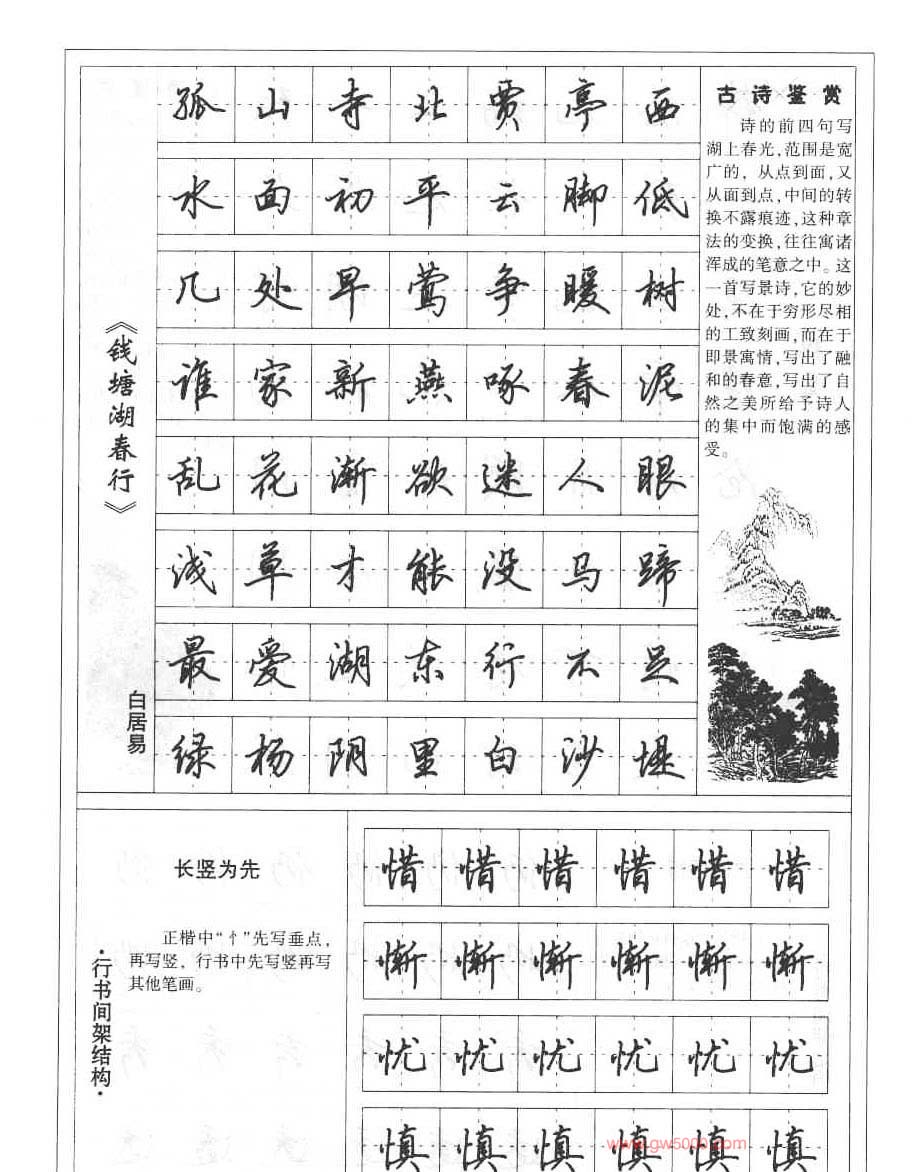 《钱塘湖春行》
白居易
孤山寺北贾亭西
水面初平云脚低
几处早莺争暖树
谁家新燕啄春泥
乱花渐欲迷人眼
浅草才能没马蹄
最爱湖东行不足
绿杨阴里白沙堤
古诗鉴赏
诗的前四句写
湖上春光,范围是宽
广的，从点到面,又
从面到点,中间的转
换不露痕迹,这种章
法的变换,往往寓诸
浑成的笔意之中。这
一首写景诗,它的妙
处,不在于穷形尽相
的工致刻画,而在于
即景寓情,写出了融
和的春意,写出了自
然之美所给予诗人
的集中而饱满的感
受。
·行书间架结构·
长竖为先
正楷中“忄”先写垂点，
再写竖，行书中先写竖再写
其他笔画。
惜惜惜惜惜惜
惭惭惭惭惭惭
忧忧忧忧忧忧
慎慎慎慎慎慎
www.gw5000.com